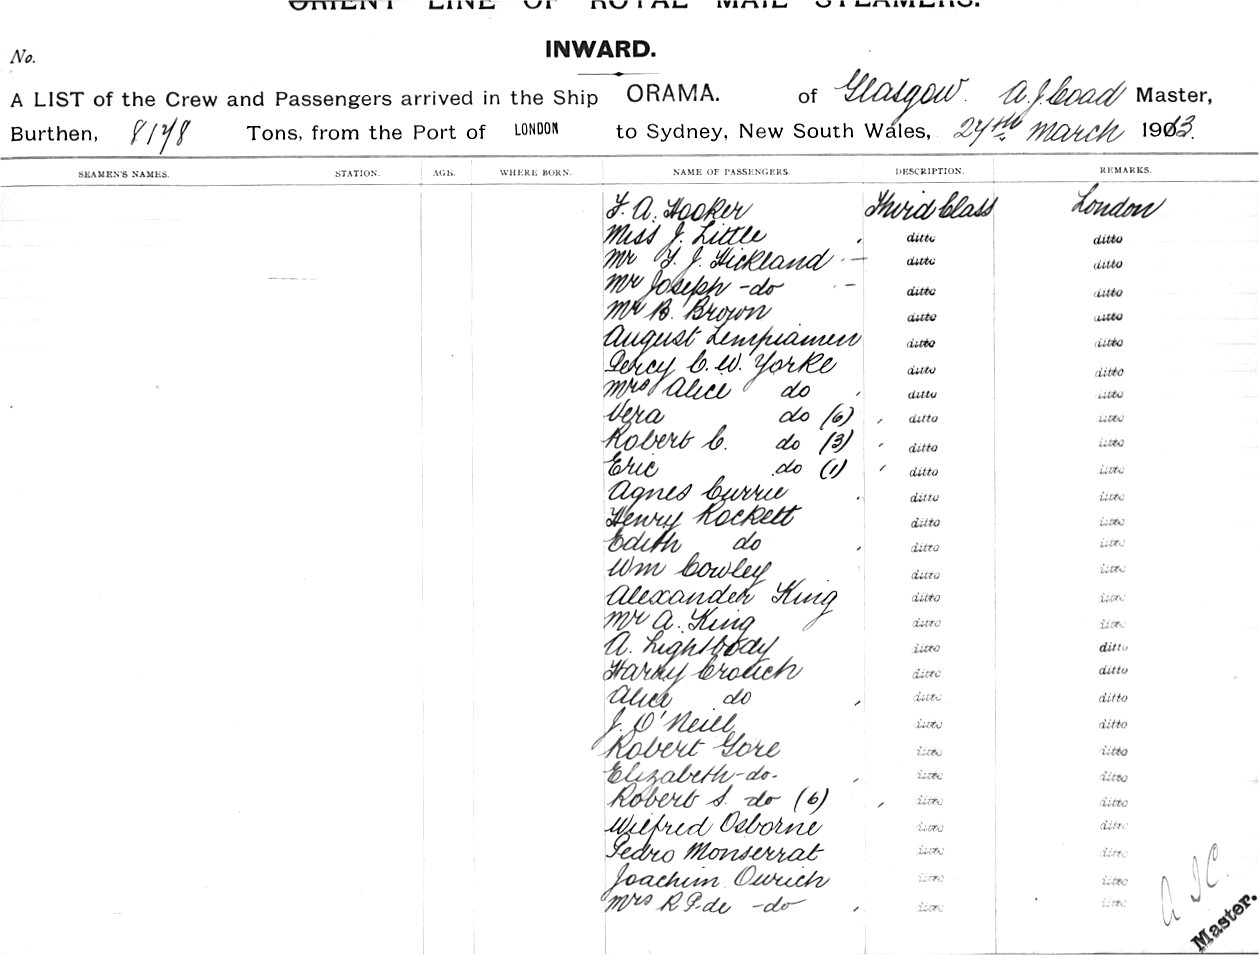 ORIENT LINE OF ROYAL MAIL STEAMERS.
INWARD.
No.
A LIST of the Crew and Passengers arrived in the Ship ORAMA. of Glasgow. A. J. Coad Master,
Burthen, 8178 Tons, from the Port of LONDON to Sydney, New South Wales, 24th March 1913.
SEAMEN'S NAMES. STATION. AGE. WHERE BORN. NAME OF PASSENGERS. DESCRIPTION. REMARKS.
F. A. Hooker Third Class London
Miss J. Little ditto ditto
Mr F. J. Hickland ditto ditto
Mr Joseph -do ditto ditto
Mr B. Brown ditto ditto
August Lempiainen ditto ditto
Percy C. W. Yorke ditto ditto
Mrs Alice do ditto ditto
Vera do (6) ditto ditto
Robert C. do (3) ditto ditto
Eric do (1) ditto ditto
Agnes Currie ditto ditto
Henry Rockett ditto ditto
Edith do ditto ditto
Wm Cowley ditto ditto
Alexander King ditto ditto
Mr A. King ditto ditto
A. Lightbody ditto ditto
Harry Crouch ditto ditto
Alice do ditto ditto
J. O'Neill ditto ditto
Robert Gore ditto ditto
Elizabeth -do- ditto ditto
Robert S. do (6) ditto ditto
Wilfred Osborne ditto ditto
Pedro Monserrat ditto ditto
Joachim Ourich ditto ditto
Mrs R P. de -do ditto ditto
Master.